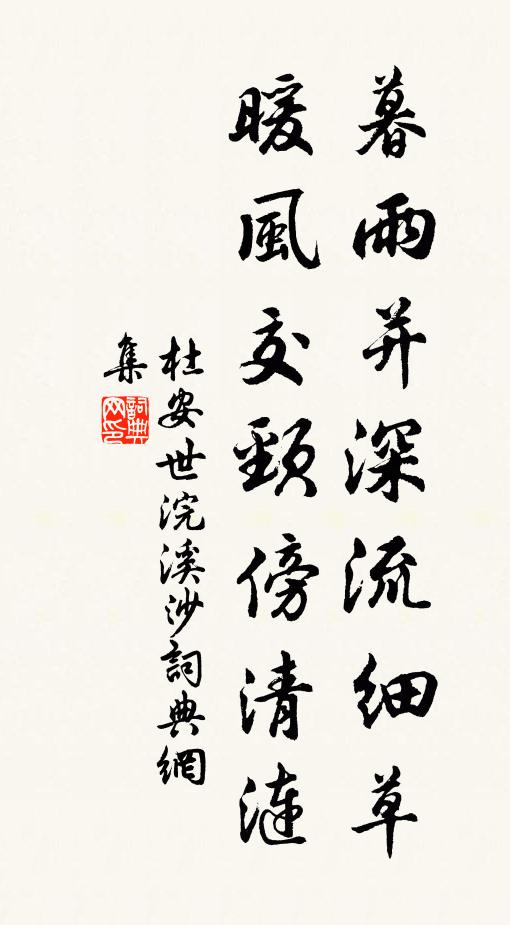 暮雨并深流細草
暖風交頸傍清漣
杜安世浣溪沙詞典網
集
詞典網印